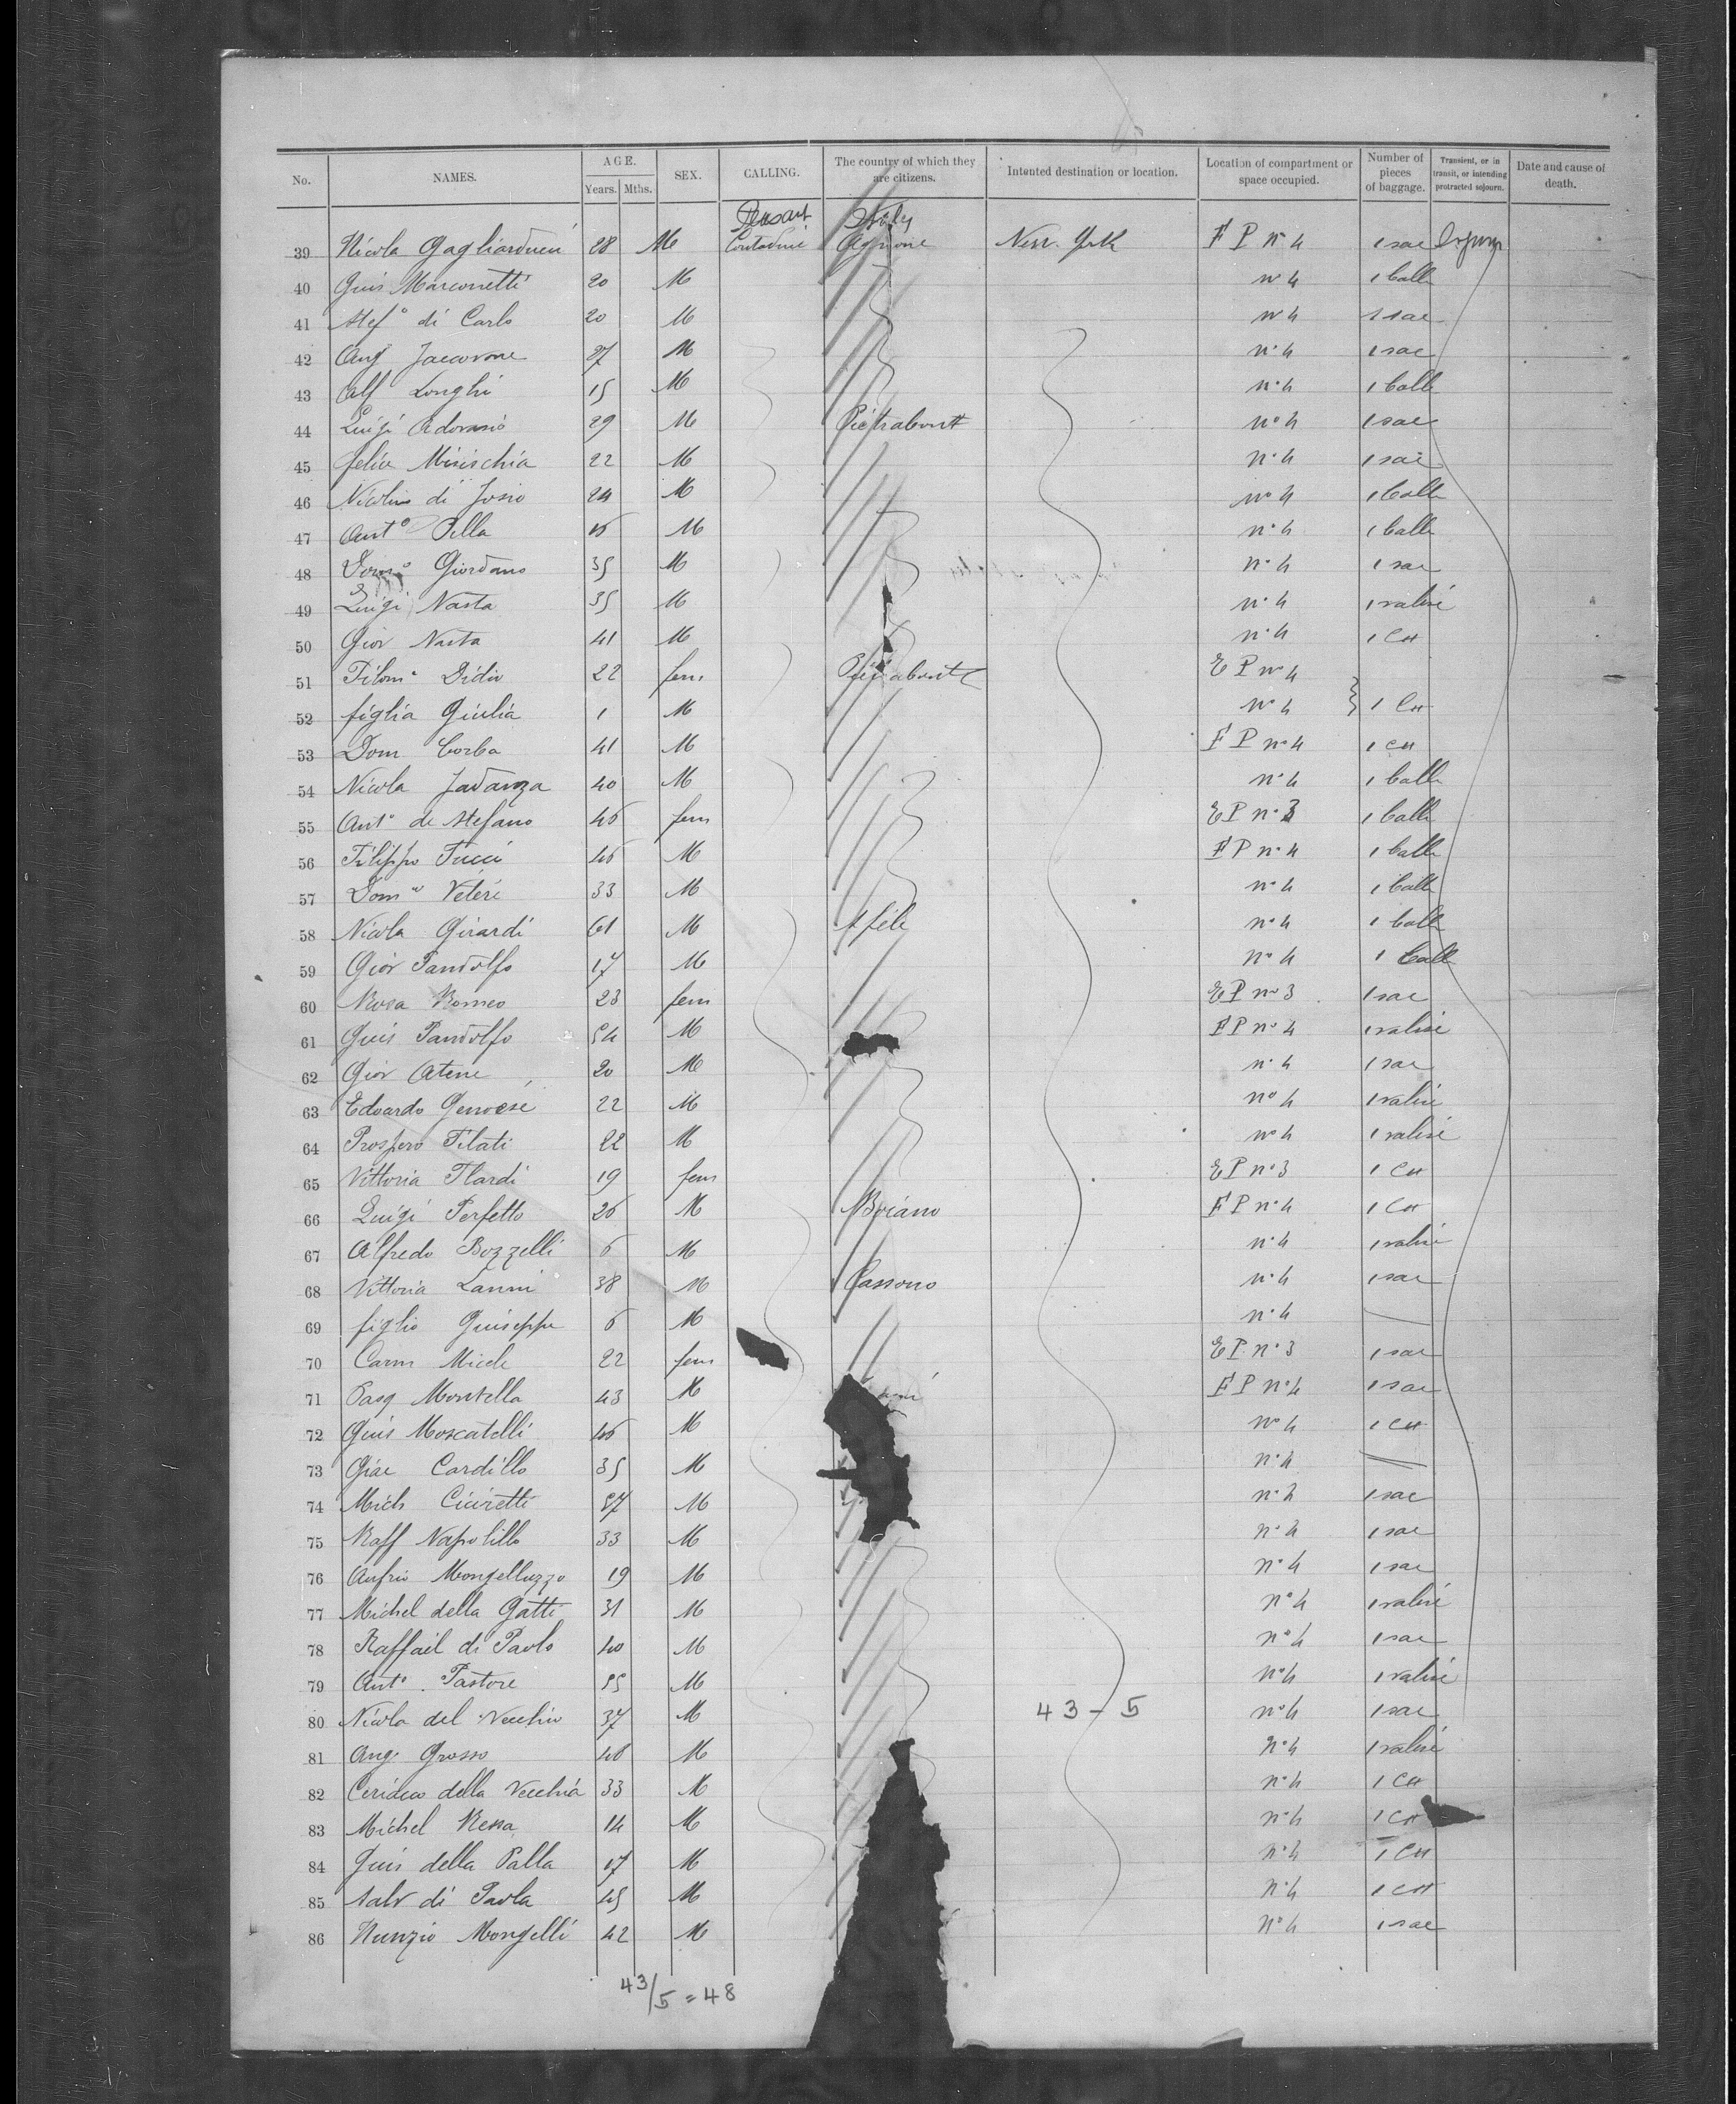 No. NAMES. AGE. Years. Mths. SEX. CALLING. The country of which they are citizens. Intented destination or location. Location of compartment or space occupied. Number of pieces of baggage. Transient, or in transit, or intending protracted sojourn. Date and cause of death.
Peasant Italy
39 Nicola Gagliarducci 28 M Contadini Agnone New. York F P nº 4 1 sac
40 Gius Marconetti 20 M nº 4 1 balle
41 Stefº di Carlo 20 M nº 4 1 sac
42 Ang Jacovone 27 M nº 4 1 sac
43 Alf Longhi 15 M nº 4 1 balle
44 Luigi Adorasio 29 M Pietrabont nº 4 1 sac
45 felice Misischia 22 M nº 4 1 sac
46 Nicolino di Josio 24 M nº 4 1 balle
47 Antº Pilla 16 M nº 4 1 balle
48 Domº Giordano 35 M nº 4 1 sac
49 Luigi Nasta 35 M nº 4 1 valise
50 Giov Nasta 41 M nº 4 1 Cst
51 Filomª Didio 22 fem Pietrabont E P nº 4
52 figlia Giulia 1 M nº 4 1 Cst
53 Dom Corba 41 M F P nº 4 1 Cst
54 Nicola Jadanza 40 M nº 4 1 balle
55 Antª de Stefano 46 fem E P nº 3 1 balle
56 Filippo Tucci 46 M F P nº 4 1 balle
57 Domº Veteri 33 M nº 4 1 balle
58 Nicola Girardi 61 M Afele nº 4 1 balle
59 Giov Pandolfo 17 M nº 4 1 balle
60 Rosa Romeo 23 fem E P nº 3 1 sac
61 Gius Pandolfo 54 M F P nº 4 1 valise
62 Giov Atene 20 M nº 4 1 sac
63 Edoardo Genoese 22 M nº 4 1 valise
64 Prospero Filati 22 M nº 4 1 valise
65 Vittoria Ilardi 19 fem E P nº 3 1 Cst
66 Luigi Perfetto 26 M Boiano F P nº 4 1 Cst
67 Alfredo Bozzelli 6 M nº 4 1 valise
68 Vittoria Lanni 38 M Cassono nº 4 1 sac
69 figlio Giuseppe 6 M nº 4
70 Carm Micele 22 fem E P nº 3 1 sac
71 Pasq Montella 43 M F P nº 4 1 sac
72 Gius Moscatelli 46 M nº 4 1 Cst
73 Giac Cardillo 35 M nº 4
74 Mich Ciciretti 57 M nº 4 1 sac
75 Raff Napolillo 33 M nº 4 1 sac
76 Mongelluzzo 19 M nº 4 1 sac
77 Michel della Gatti 31 M nº 4 1 valise
78 Raffail di Paolo 40 M nº 4 1 sac
79 Antº Pastore 55 M nº 4 1 valise
80 Nicola del Vecchio 37 M 43-5 nº 4 1 sac
81 Ang. Grosso 48 M nº 4 1 valise
82 della Vecchia 33 M nº 4 1 Cst
83 Michel Ressa 14 M nº 4 1 Cst
84 Gius della Palla 17 M nº 4 1 Cst
85 Salv di Paola 45 M nº 4 1 Cst
86 Nunzio Mongelli 42 M nº 4 1 sac
43/5 = 48